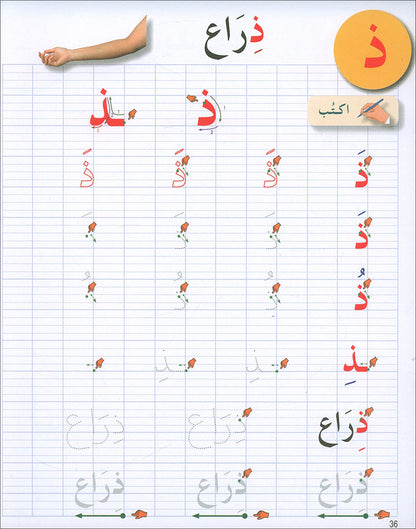 ذ ذِرَاع
اكتُب
ذ ـذ
ذَ ذَ ذَ ذَ
ذَ
ذُ ذُ ذُ ذُ
ـذِ ـذِ ـذِ
ذِرَاع ذِرَاع ذِرَاع
ذِرَاع ذِرَاع ذِرَاع
36